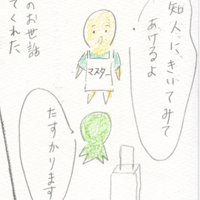 知人に、きいてみて
あげるよ
マスター
たすかります
のお世話
てくれた